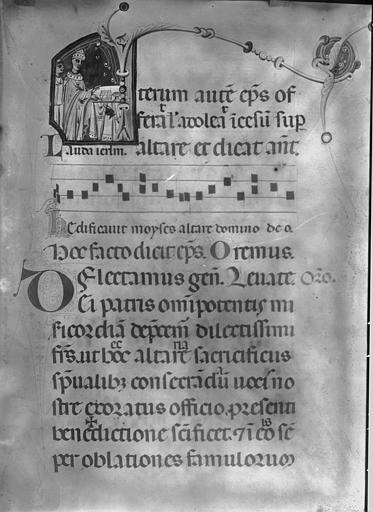 Iterum autē eṗs of
ferat l' adoleat īcēsū suꝑ
Lauda ierlm. altare et dicat ant̄.
hEdificauit moyses altare domino deo.
Hoc facto dicit eṗs. Oremus.
Flectamus gen̄. Leuate. Orō.
DEi patris omīpotentis mi
sericordiā dep̄cem̄ dilectissimi
fr̄s. ut hoc altare sacrificiis
sp̄ualibꝫ consecrādū uocis no
stre exoratus officio. presenti
benedictione sc̄ificet. ⁊ ī eo sē
per oblationes famulorum